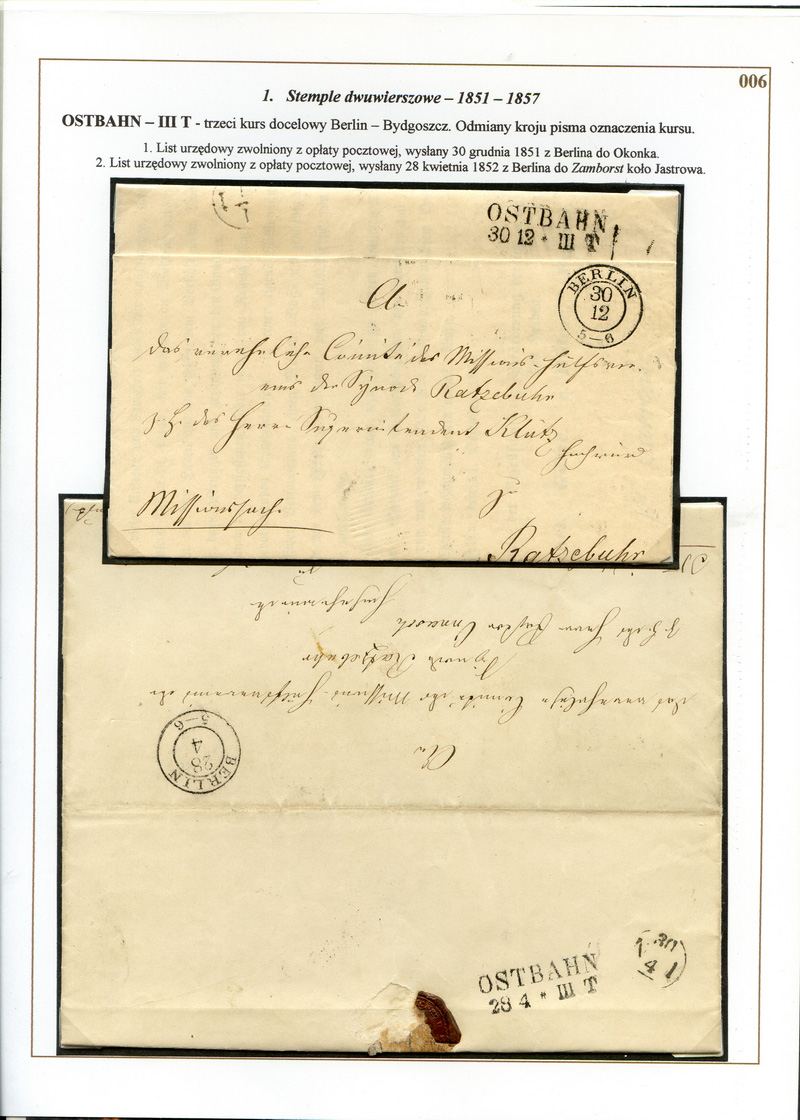 006
1. Stemple dwuwierszowe – 1851 – 1857
OSTBAHN – III T - trzeci kurs docelowy Berlin – Bydgoszcz. Odmiany kroju pisma oznaczenia kursu.
1. List urzędowy zwolniony z opłaty pocztowej, wysłany 30 grudnia 1851 z Berlina do Okonka.
2. List urzędowy zwolniony z opłaty pocztowej, wysłany 28 kwietnia 1852 z Berlina do Zamborst koło Jastrowa.
OSTBAHN
30 12 * III T
BERLIN
30
12
5–6
das verehrliche Comité des Missions-Hülfsver.
eins der Synode Ratzebuhr
z. H. des Herrn Superintendent Klütz
Missionssach.
Ratzebuhr
Synode Ratzebuhr
das verehrliche Comité des Missions-Hülfsvereins der
BERLIN
28
4
5–6
OSTBAHN
28 4 * III T
30
4